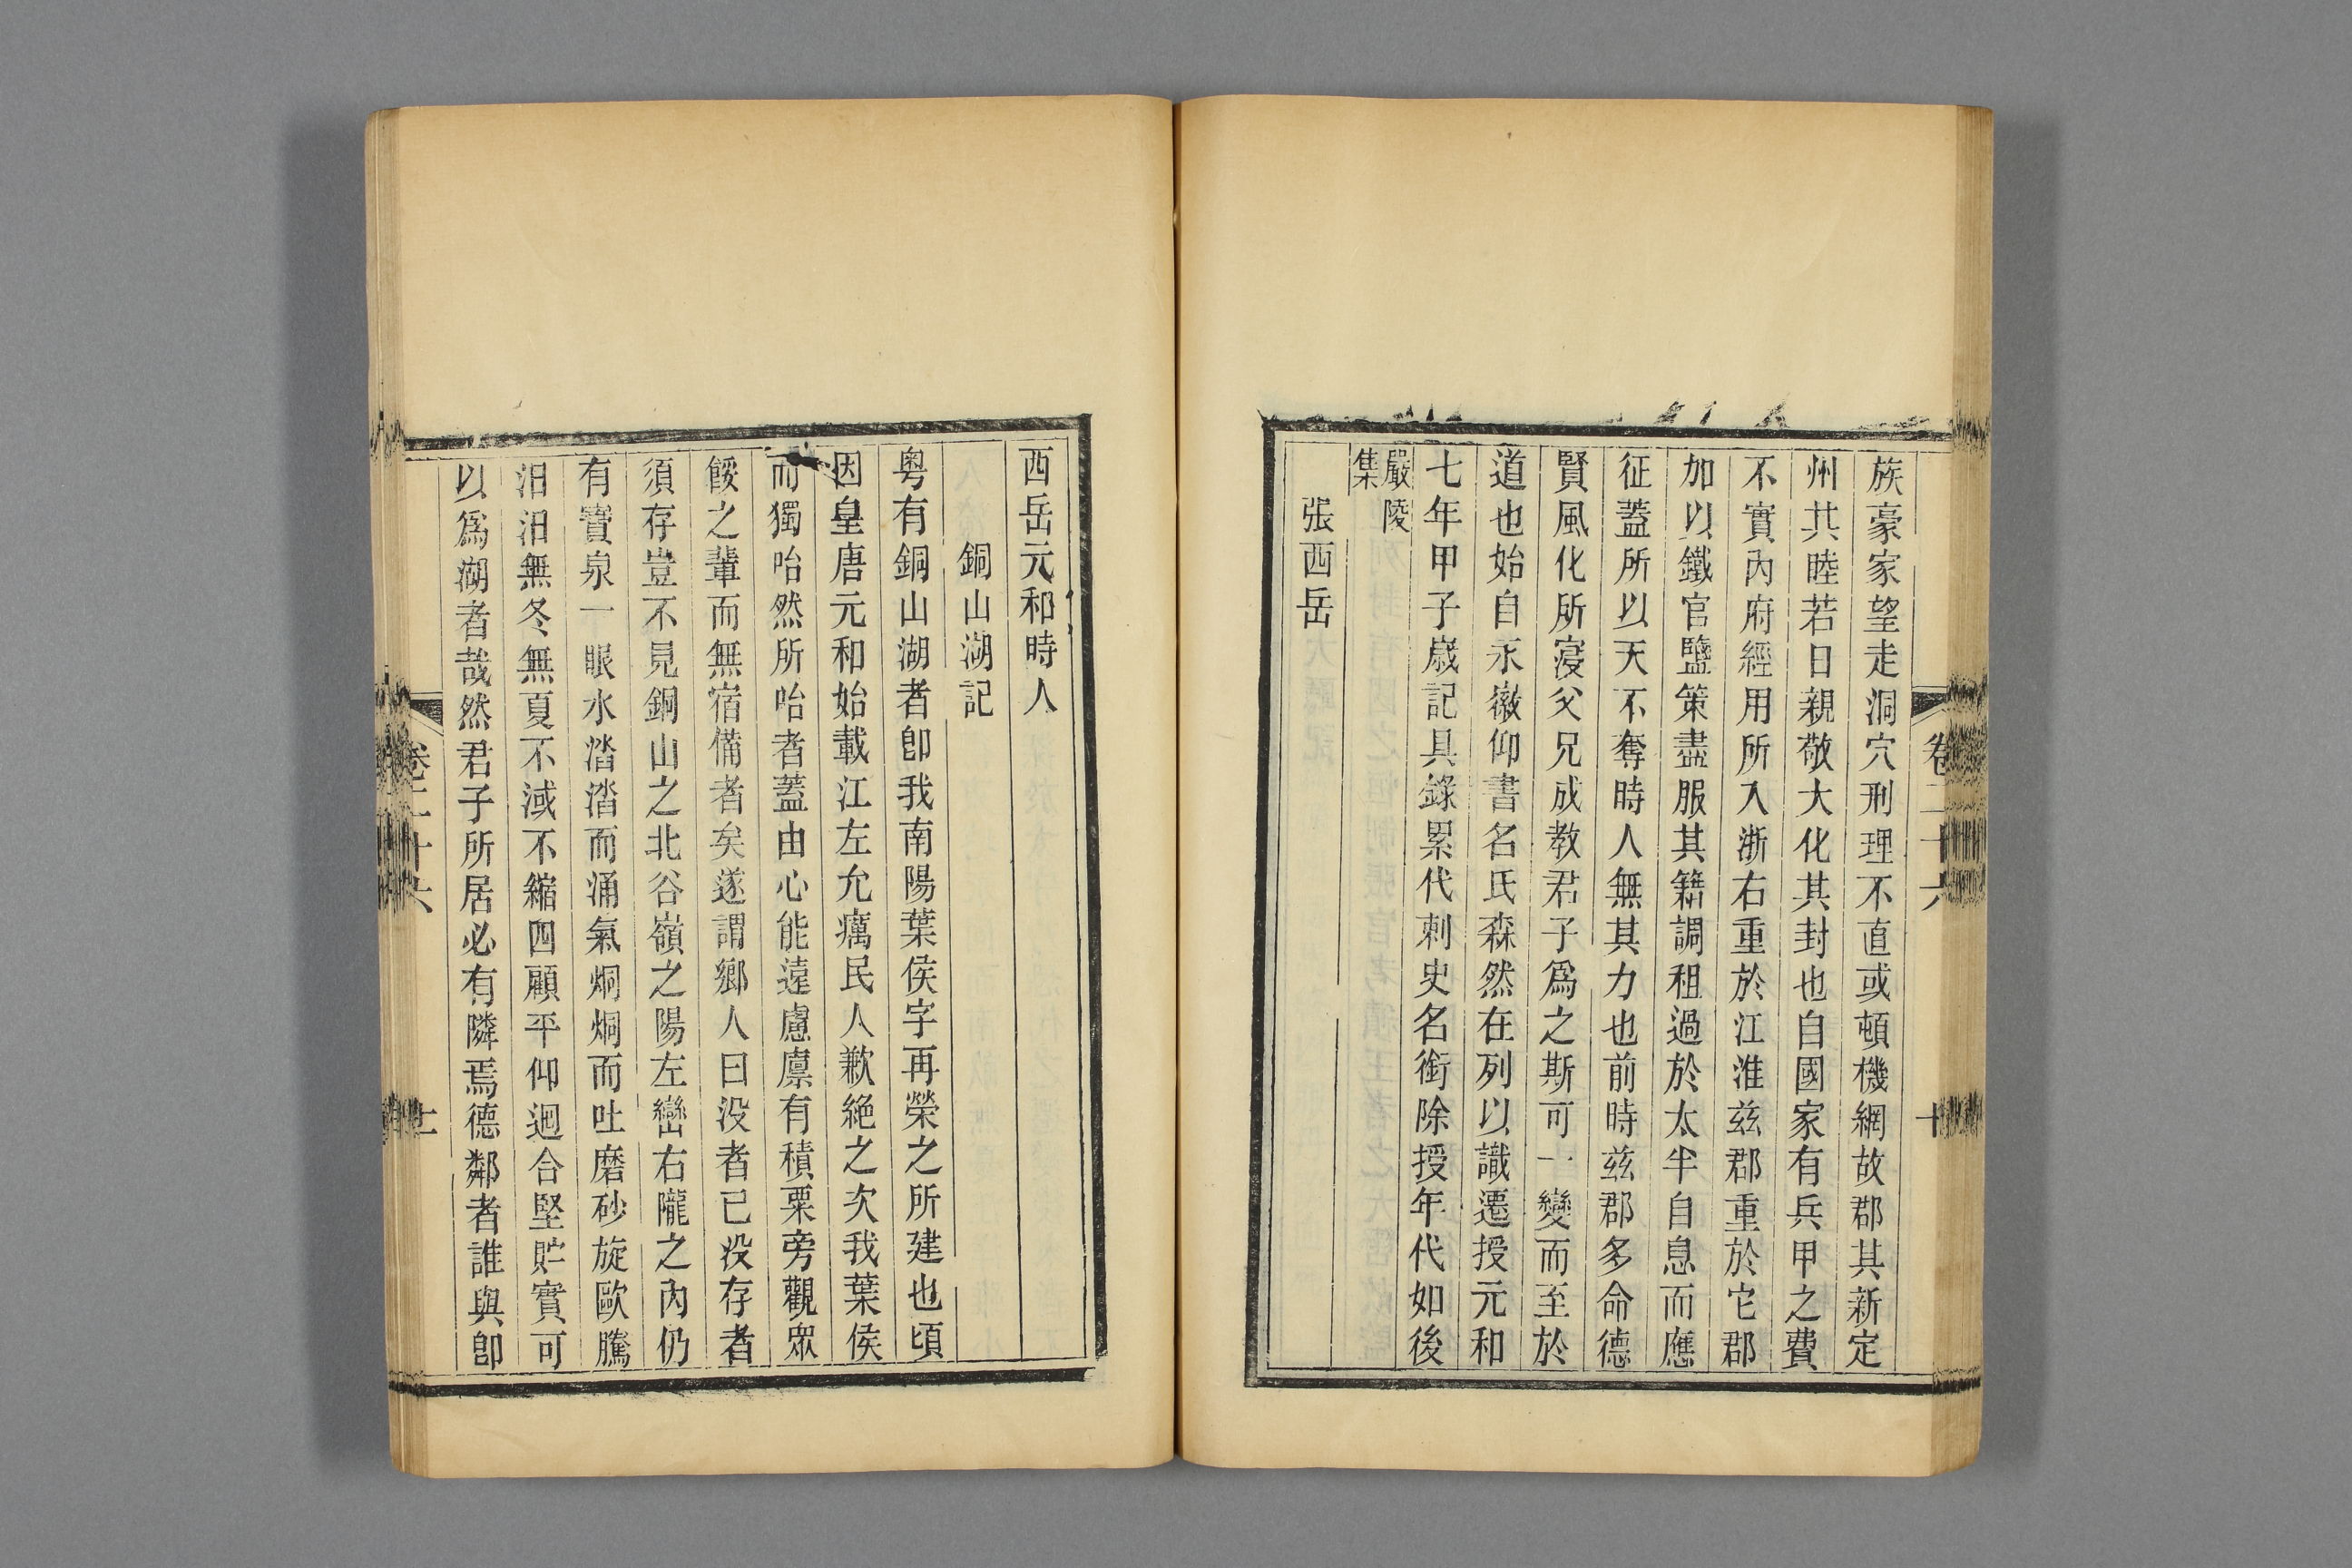 卷二十六
十
族豪家望走洞穴刑理不直或頓機網故郡其新定
州共睦若日親敬大化其封也自國家有兵甲之費
不實內府經用所入浙右重於江淮茲郡重於它郡
加以鐵官鹽策盡服其籍調租過於太半自息而應
征蓋所以天不奪時人無其力也前時茲郡多命德
賢風化所寖父兄成教君子爲之斯可一變而至於
道也始自永徽仰書名氏森然在列以識遷授元和
七年甲子歲記具錄累代刺史名銜除授年代如後
嚴陵
集
張西岳
西岳元和時人
銅山湖記
粵有銅山湖者卽我南陽葉侯字再榮之所建也頃
因皇唐元和始載江左允癘民人歉絶之次我葉侯
而獨咍然所咍者蓋由心能遠慮廩有積粟旁觀眾
餒之輩而無宿備者矣遂謂鄉人曰没者已没存者
須存豈不見銅山之北谷嶺之陽左巒右隴之內仍
有寶泉一眼水涾涾而涌氣烔烔而吐磨砂旋歐騰
汨汨無冬無夏不減不縮四顧平仰迴合堅貯實可
以爲湖者哉然君子所居必有隣焉德鄰者誰與卽
卷二十六
十一